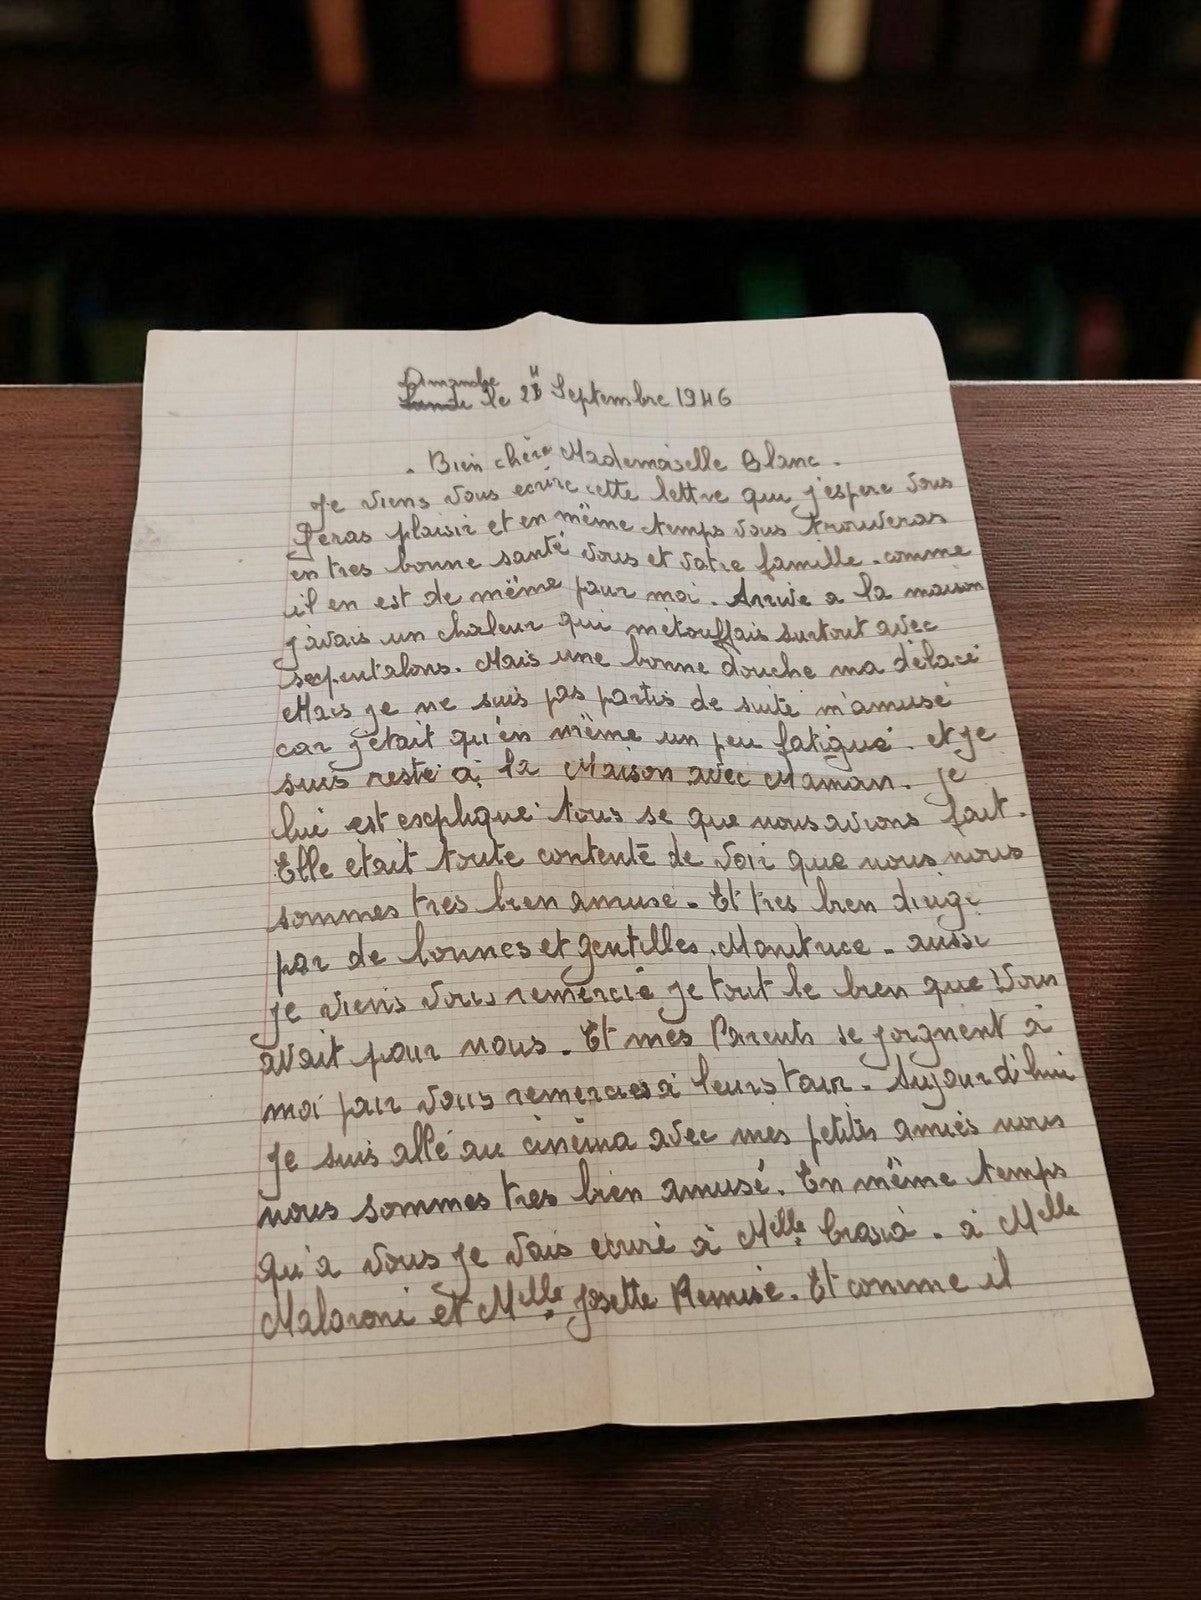 Dimanche
le 2 Septembre 1946
. Bien chère Mademoiselle Blanc .
Je viens vous ecrire cette lettre que j'espere vous
feras plaisir et en même temps vous trouveras
en tres bonne santé vous et votre famille . comme
il en est de même pour moi . Arrive a la maison
j'avais un chaleur qui m'etouffais surtout avec
. Mais une bonne douche ma délacé
Mais je ne suis pas partis de suite m'amusé
car j'etait qu'en même un peu fatigué . et je
suis resté à la Maison avec Maman . Je
lui est expliqué tous se que nous avions fait .
Elle etait toute contente de voir que nous nous
sommes tres bien amusé . Et tres bien dirigé
par de bonnes et gentilles . Monitrice . aussi
je viens vous remercié je tout le bien que vous
avait pour nous . Et mes Parents se joignent à
moi pour vous remercier à leurs tour . Aujourd'hui
Je suis allé au cinéma avec mes petits amies nous
nous sommes tres bien amusé . En même temps
qu'a vous je vais ecrire à Mlle . à Mlle
Malaroni et Mlle Josette . Et comme il